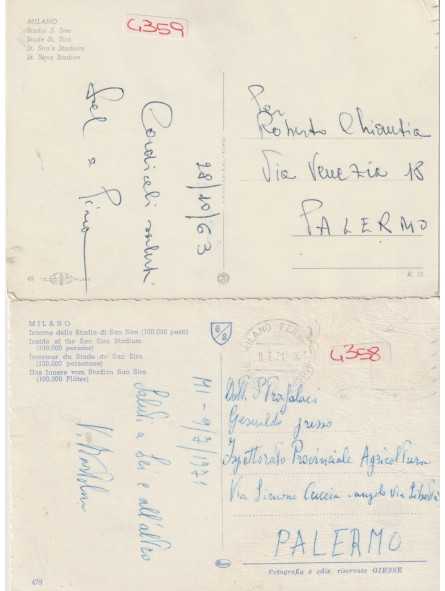 MILANO
Stadio S. Siro
Stade St. Siro
St. Siro's Stadium
St. Siro Stadion
4359
Cordiali saluti
28/10/63
Per
Roberto Chiantia
Via Venezia 18
PALERMO
MILANO
Interno dello Stadio di San Siro (100.000 posti)
Inside of the San Siro Stadium
(100.000 persons)
Interieur du Stade de San Siro
(100.000 personnes)
Das Innere vom Stadion San Siro
(100.000 Plätze)
G S
MILANO
4358
MI - 9/7/1971
Saluti a Lei e all'altro
Dott.
Gesualdo
Ispettorato Provinciale Agricoltura
Via Simone Cuccia angolo Via Libertà
PALERMO
478
Fotografia e ediz. riservata GIESSE